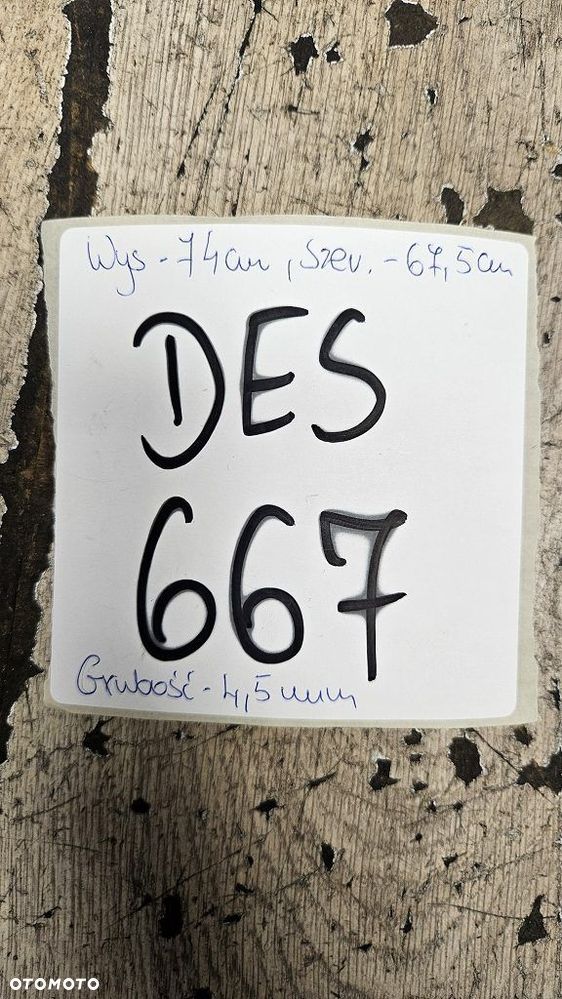 Wys - 74cm, Szer. - 67,5cm
DES
667
Grubość - 4,5 mm
OTOMOTO